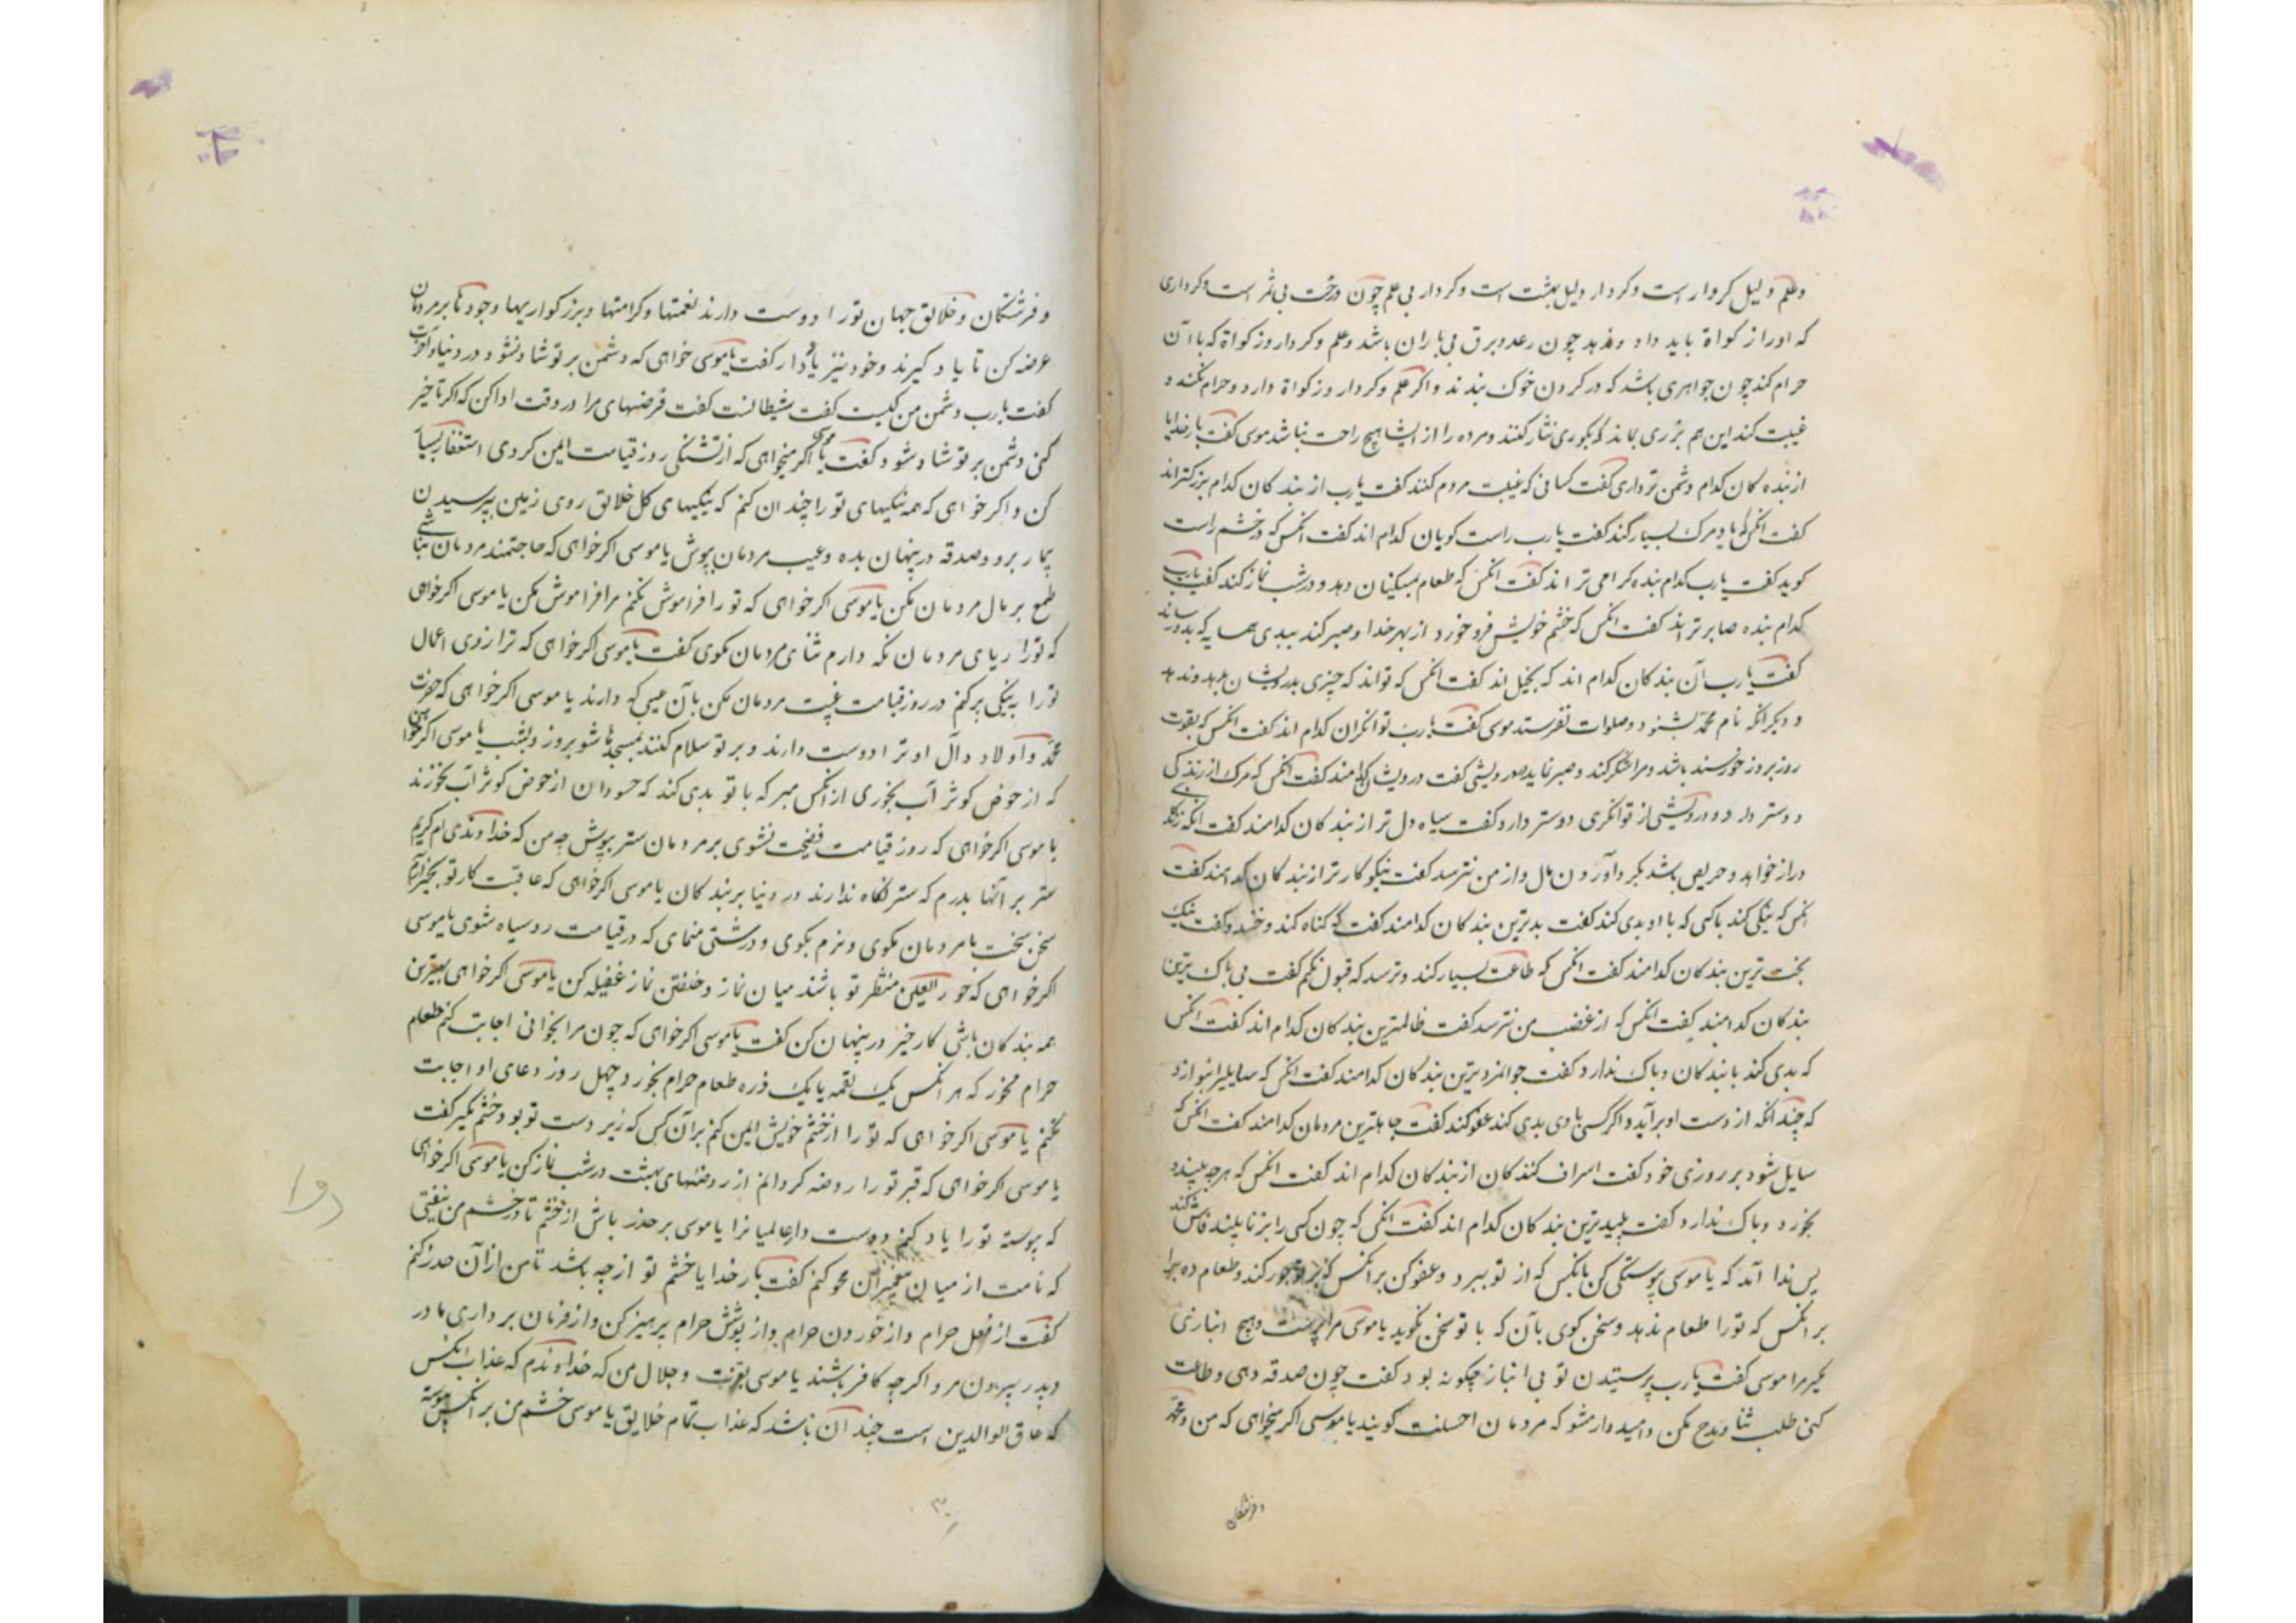 وعلم دلیل کردار است وکردار دلیل بهشت است وکردار بی علم چون درخت بی ثمر است وکرداری
که اورا زکواة باید داد وندهد چون رعد وبرق بی باران باشد وعلم وکردار وزکواة که با آن
حرام کند چون جواهری باشد که در کردن خوک بندند واکر علم وکردار وزکواة دارد وحرام نکند و
غیبت کند این هم بزری بماند که بکوری نثار کنند ومرده را از ایشا هیچ راحت نباشد موسی کفت بارخدایا
از بنده کان کدام دشمن تر داری کفت کسانی که غیبت مردم کنند کفت یارب از بند کان کدام بزرکتراند
کفت انکس که یاد مرک بسیار کند کفت یارب راست کویان کدام اند کفت انکس که در خشم راست
کوید کفت یارب کدام بنده کرامی تر اند کفت انکس که طعام بمسکینان دهد و درشب نماز کند کفت یارب
کدام بنده صابر تراند کفت انکس که خشم خویش فرو خورد از بهر خدا وصبر کند ببدی همسایه که بدو رساند
کفت یارب آن بند کان کدام اند که بخیل اند کفت انکس که تواند که چیزی بدرویشان بدهد وندهد
و دیکر انکه نام محمد بشنود وصلوات نفرستد موسی کفت یارب توانکران کدام اند کفت انکس که بقوت
روز بروز خورسند باشد ومرا شکر کند وصبر نماید در درویشی کفت درویشان کدامند کفت انکس که مرک از زندکی
دوستر دارد ودرویشی از توانکری دوستر دارد کفت سیاه دل تر از بند کان کدامند کفت انکه زندکی
دراز خواهد وحریص باشد بکرد آوردن مال واز من نترسد کفت نیکو کارتر از بند کان کدامند کفت
انکس که نیکی کند باکسی که با او بدی کند کفت بدترین بند کان کدامند کفت که کناه کند وخندد وکفت نیک
بخت ترین بند کان کدامند کفت انکس که طاعت بسیار کند وترسد که قبول نکنم کفت بی باک ترین
بند کان کدامند کفت انکس که از غضب من نترسد کفت ظالمترین بند کان کدام اند کفت انکس
که بدی کند با بند کان وباک ندارد کفت جوانمردترین بند کان کدامند کفت انکس که سایلیرا بنوازد
که چندانکه از دست او برآید واکر کسی با وی بدی کند عفو کند کفت جاهلترین مردمان کدامند کفت انکس که
سایل شود بر روزی خود کفت اسراف کنند کان از بند کان کدام اند کفت انکس که هرچه بیند
بخورد وباک ندارد کفت پلیدترین بند کان کدام اند کفت انکس که چون کسی را بزنا بیند فاش کند
پس ندا آمد که یا موسی پیوستکی کن بانکس که از تو ببرد وعفو کن بر انکس که بر تو جور کند وطعام ده مرا
بر انکس که تورا طعام ندهد وسخن کوی بآن که با تو سخن نکوید یا موسی مرا پرست وهیچ انبازی
مکیر مرا موسی کفت یارب پرستیدن تو بی انباز چکونه بود کفت چون صدقه دهی وطاعت
کنی طلب ثنا ومدح مکن وامیدوار مشو که مردمان احسنت کویند یا موسی اکر میخواهی که من ومحمد
وفرشتکان
وفرشتکان وخلائق جهان تورا دوست دارند نعمتها وکرامتها وبزرکواریها وجود ما بر مردمان
عرضه کن تا یاد کیرند وخود نیز یاد دار کفت یا موسی خواهی که دشمن بر تو شاد نشود در دنیا وآخرت
کفت یارب دشمن من کیست کفت شیطانست کفت فرضهای مرا در وقت ادا کن که اکر تاخیر
کنی دشمن بر تو شاد شود کفت یا موسی اکر میخواهی که از تشنکی روز قیامت ایمن کردی استغفار بسیا
کن واکر خواهی که همه نیکیهای تو را چندان کنم که نیکیهای کل خلائق روی زمین بپرسیدن
بیمار برو وصدقه در پنهان بده وعیب مردمان بپوش یا موسی اکر خواهی که حاجتمند مردمان نباشی
طمع بر مال مردمان مکن یا موسی اکر خواهی که تو را فراموش نکنم مرا فراموش مکن یا موسی اکر خواهی
که تورا از ریای مردمان نکه دارم ثنای مردمان مکوی کفت یا موسی اکر خواهی که ترازوی اعمال
تورا به نیکی پر کنم در روز قیامت غیبت مردمان مکن بآن عیبی که دارند یا موسی اکر خواهی که حضرت
محمد وآولاد وآل او ترا دوست دارند وبر تو سلام کنند بمسجدها شو بروز وبشب یا موسی اکر خواهی
که از حوض کوثر آب بخوری از انکس مبر که با تو بدی کند که حسودان از حوض کوثر آب نخورند
یا موسی اکر خواهی که روز قیامت فضیحت نشوی بر مردمان ستر بپوش چه من که خداوندی ام کریم
ستر بر آنها بدرم که ستر نکاه ندارند در دنیا بر بند کان یا موسی اکر خواهی که عاقبت کار تو بخیر آید
سخن سخت با مردمان مکوی ونرم بکوی ودرشتی منمای که در قیامت روسیاه شوی یا موسی
اکر خواهی که حور العین منتظر تو باشند میان نماز وخفتن نماز غفیله کن یا موسی اکر خواهی بهترین
همه بند کان باشی کار خیر در پنهان کن کفت یا موسی اکر خواهی که چون مرا بخوانی اجابت کنم طعام
حرام مخور که هر انکس یک لقمه یا یک ذره طعام حرام بخورد چهل روز دعای او اجابت
نکنم یا موسی اکر خواهی که تو را از خشم خویش ایمن کنم بر آن کس که زیر دست تو بود خشم مکیر کفت
یا موسی اکر خواهی که قبر تو را روضه کردانم از روضهای بهشت در شب نماز کن یا موسی اکر خواهی
که پیوسته تورا یاد کنم دوست دار عالمیانرا یا موسی بر حذر باش از خشم تا در خشم من نیفتی
که نامت از میان پیغمبران محو کنم کفت بار خدایا خشم تو از چه باشد تا من از آن حذر کنم
کفت از فعل حرام واز خوردن حرام واز پوشش حرام پرهیز کن واز فرمان برداری مادر
وپدر بیرون مرو اکرچه کافر باشند یا موسی بعزت وجلال من که خداوندم که عذاب انکس
که عاق الوالدین است چندان باشد که عذاب تمام خلایق یا موسی خشم من بر انکس پیوسته